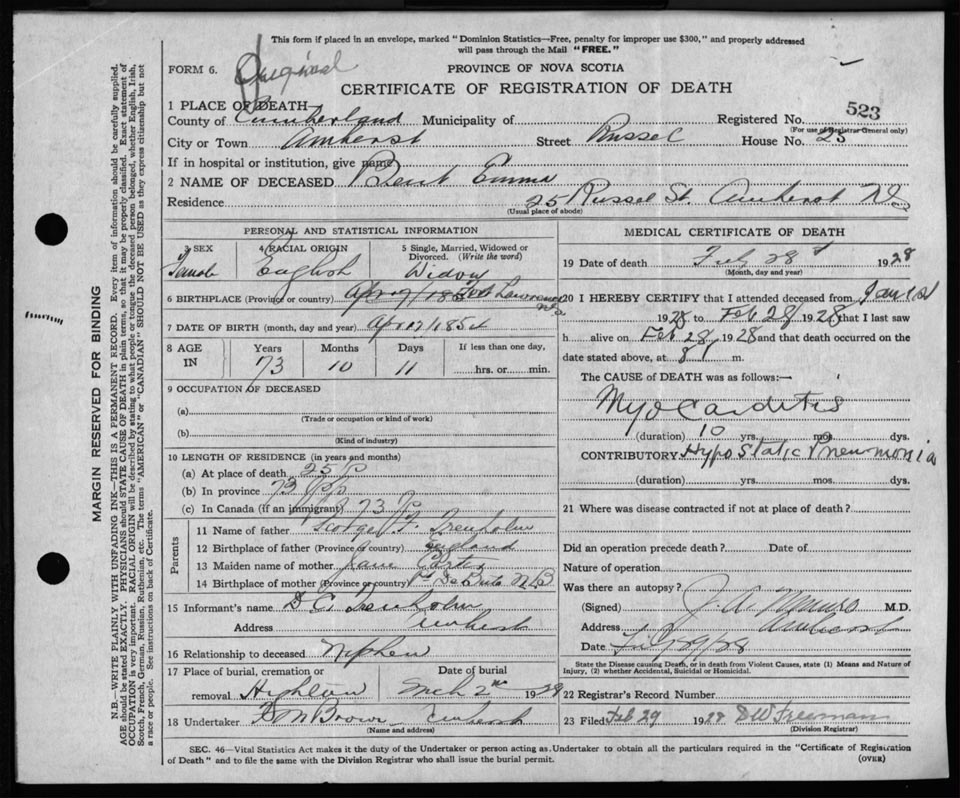 This form if placed in an envelope, marked "Dominion Statistics—Free, penalty for improper use $300," and properly addressed
will pass through the Mail "FREE."
FORM 6. Original
PROVINCE OF NOVA SCOTIA
CERTIFICATE OF REGISTRATION OF DEATH
523
1 PLACE OF DEATH—
County of Cumberland Municipality of Registered No.
(For use of Registrar General only)
City or Town Amherst Street Russel House No. 25
If in hospital or institution, give name
2 NAME OF DECEASED Bent Emma
Residence 25 Russel St. Amherst NS
(Usual place of abode)
PERSONAL AND STATISTICAL INFORMATION
3 SEX Female
4 RACIAL ORIGIN English
5 Single, Married, Widowed or Divorced. (Write the word) Widow
6 BIRTHPLACE (Province or country) Fort Lawrence NS
7 DATE OF BIRTH (month, day and year) Apr 17/1854
8 AGE IN Years Months Days If less than one day,
73 10 11 hrs. or min.
9 OCCUPATION OF DECEASED
(a)
(Trade or occupation or kind of work)
(b)
(Kind of industry)
10 LENGTH OF RESIDENCE (in years and months)
(a) At place of death 25
(b) In province 73
(c) In Canada (if an immigrant) 73
Parents
11 Name of father George F. Trenholm
12 Birthplace of father (Province or country) England
13 Maiden name of mother Jane Carter
14 Birthplace of mother (Province or country) Pt De Bute NB
15 Informant's name D C Trenholm
Address Amherst
16 Relationship to deceased Nephew
17 Place of burial, cremation or removal Highland Date of burial Mch 2nd 1928
18 Undertaker F M Brown Amherst
(Name and address)
MEDICAL CERTIFICATE OF DEATH
19 Date of death Feb 28 1928
(Month, day and year)
20 I HEREBY CERTIFY that I attended deceased from Jan 1st
1928 to Feb 28 1928 that I last saw
h alive on Feb 28 1928 and that death occurred on the
date stated above, at 8 m.
The CAUSE OF DEATH was as follows:—
Myocarditis
(duration) 10 yrs. mos. dys.
CONTRIBUTORY Hypostatic Pneumonia
(duration) yrs. mos. dys.
21 Where was disease contracted if not at place of death?
Did an operation precede death? Date of
Nature of operation
Was there an autopsy?
(Signed) J. A. M.D.
Address Amherst
Date Feb 29/28
State the Disease causing Death, or in death from Violent Causes, state (1) Means and Nature of
Injury, (2) whether Accidental, Suicidal or Homicidal.
22 Registrar's Record Number
23 Filed Feb 29 1928 DW Freeman
(Division Registrar)
SEC. 46—Vital Statistics Act makes it the duty of the Undertaker or person acting as Undertaker to obtain all the particulars required in the "Certificate of Registration
of Death" and to file the same with the Division Registrar who shall issue the burial permit. (OVER)
MARGIN RESERVED FOR BINDING
N.B.—WRITE PLAINLY WITH UNFADING INK—THIS IS A PERMANENT RECORD. Every item of information should be carefully supplied.
AGE should be stated EXACTLY. PHYSICIANS should STATE CAUSE OF DEATH in plain terms, so that it may be properly classified. Exact statement of
OCCUPATION is very important. RACIAL ORIGIN will be described by stating to what people or tongue the deceased person belonged, whether English, Irish,
Scotch, French, German, Russian, Ruthenian, etc. The terms "AMERICAN" or "CANADIAN" SHOULD NOT BE USED as they express citizenship but not
a race or people. See instructions on back of Certificate.